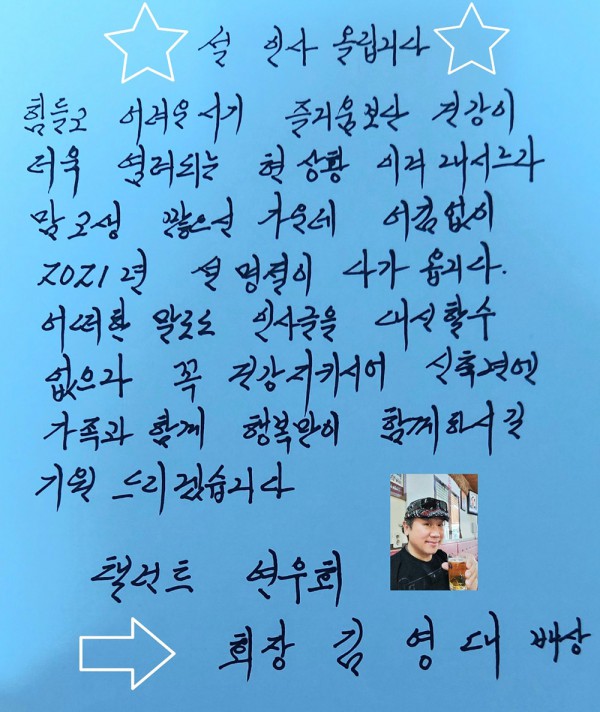 설 인사 올립니다
힘들고 어려운시기 즐거움보단 건강이
더욱 염려되는 현상황 이겨 내시느라
맘고생 많으신 가운데 어김없이
2021년 설 명절이 다가 옵니다.
어떠한 말로도 인사글을 대신할수
없으나 꼭 건강지키시어 신축년엔
가족과 함께 행복만이 함께하시길
기원 드리겠습니다
탤런트 연우회
회장 김영대 배상